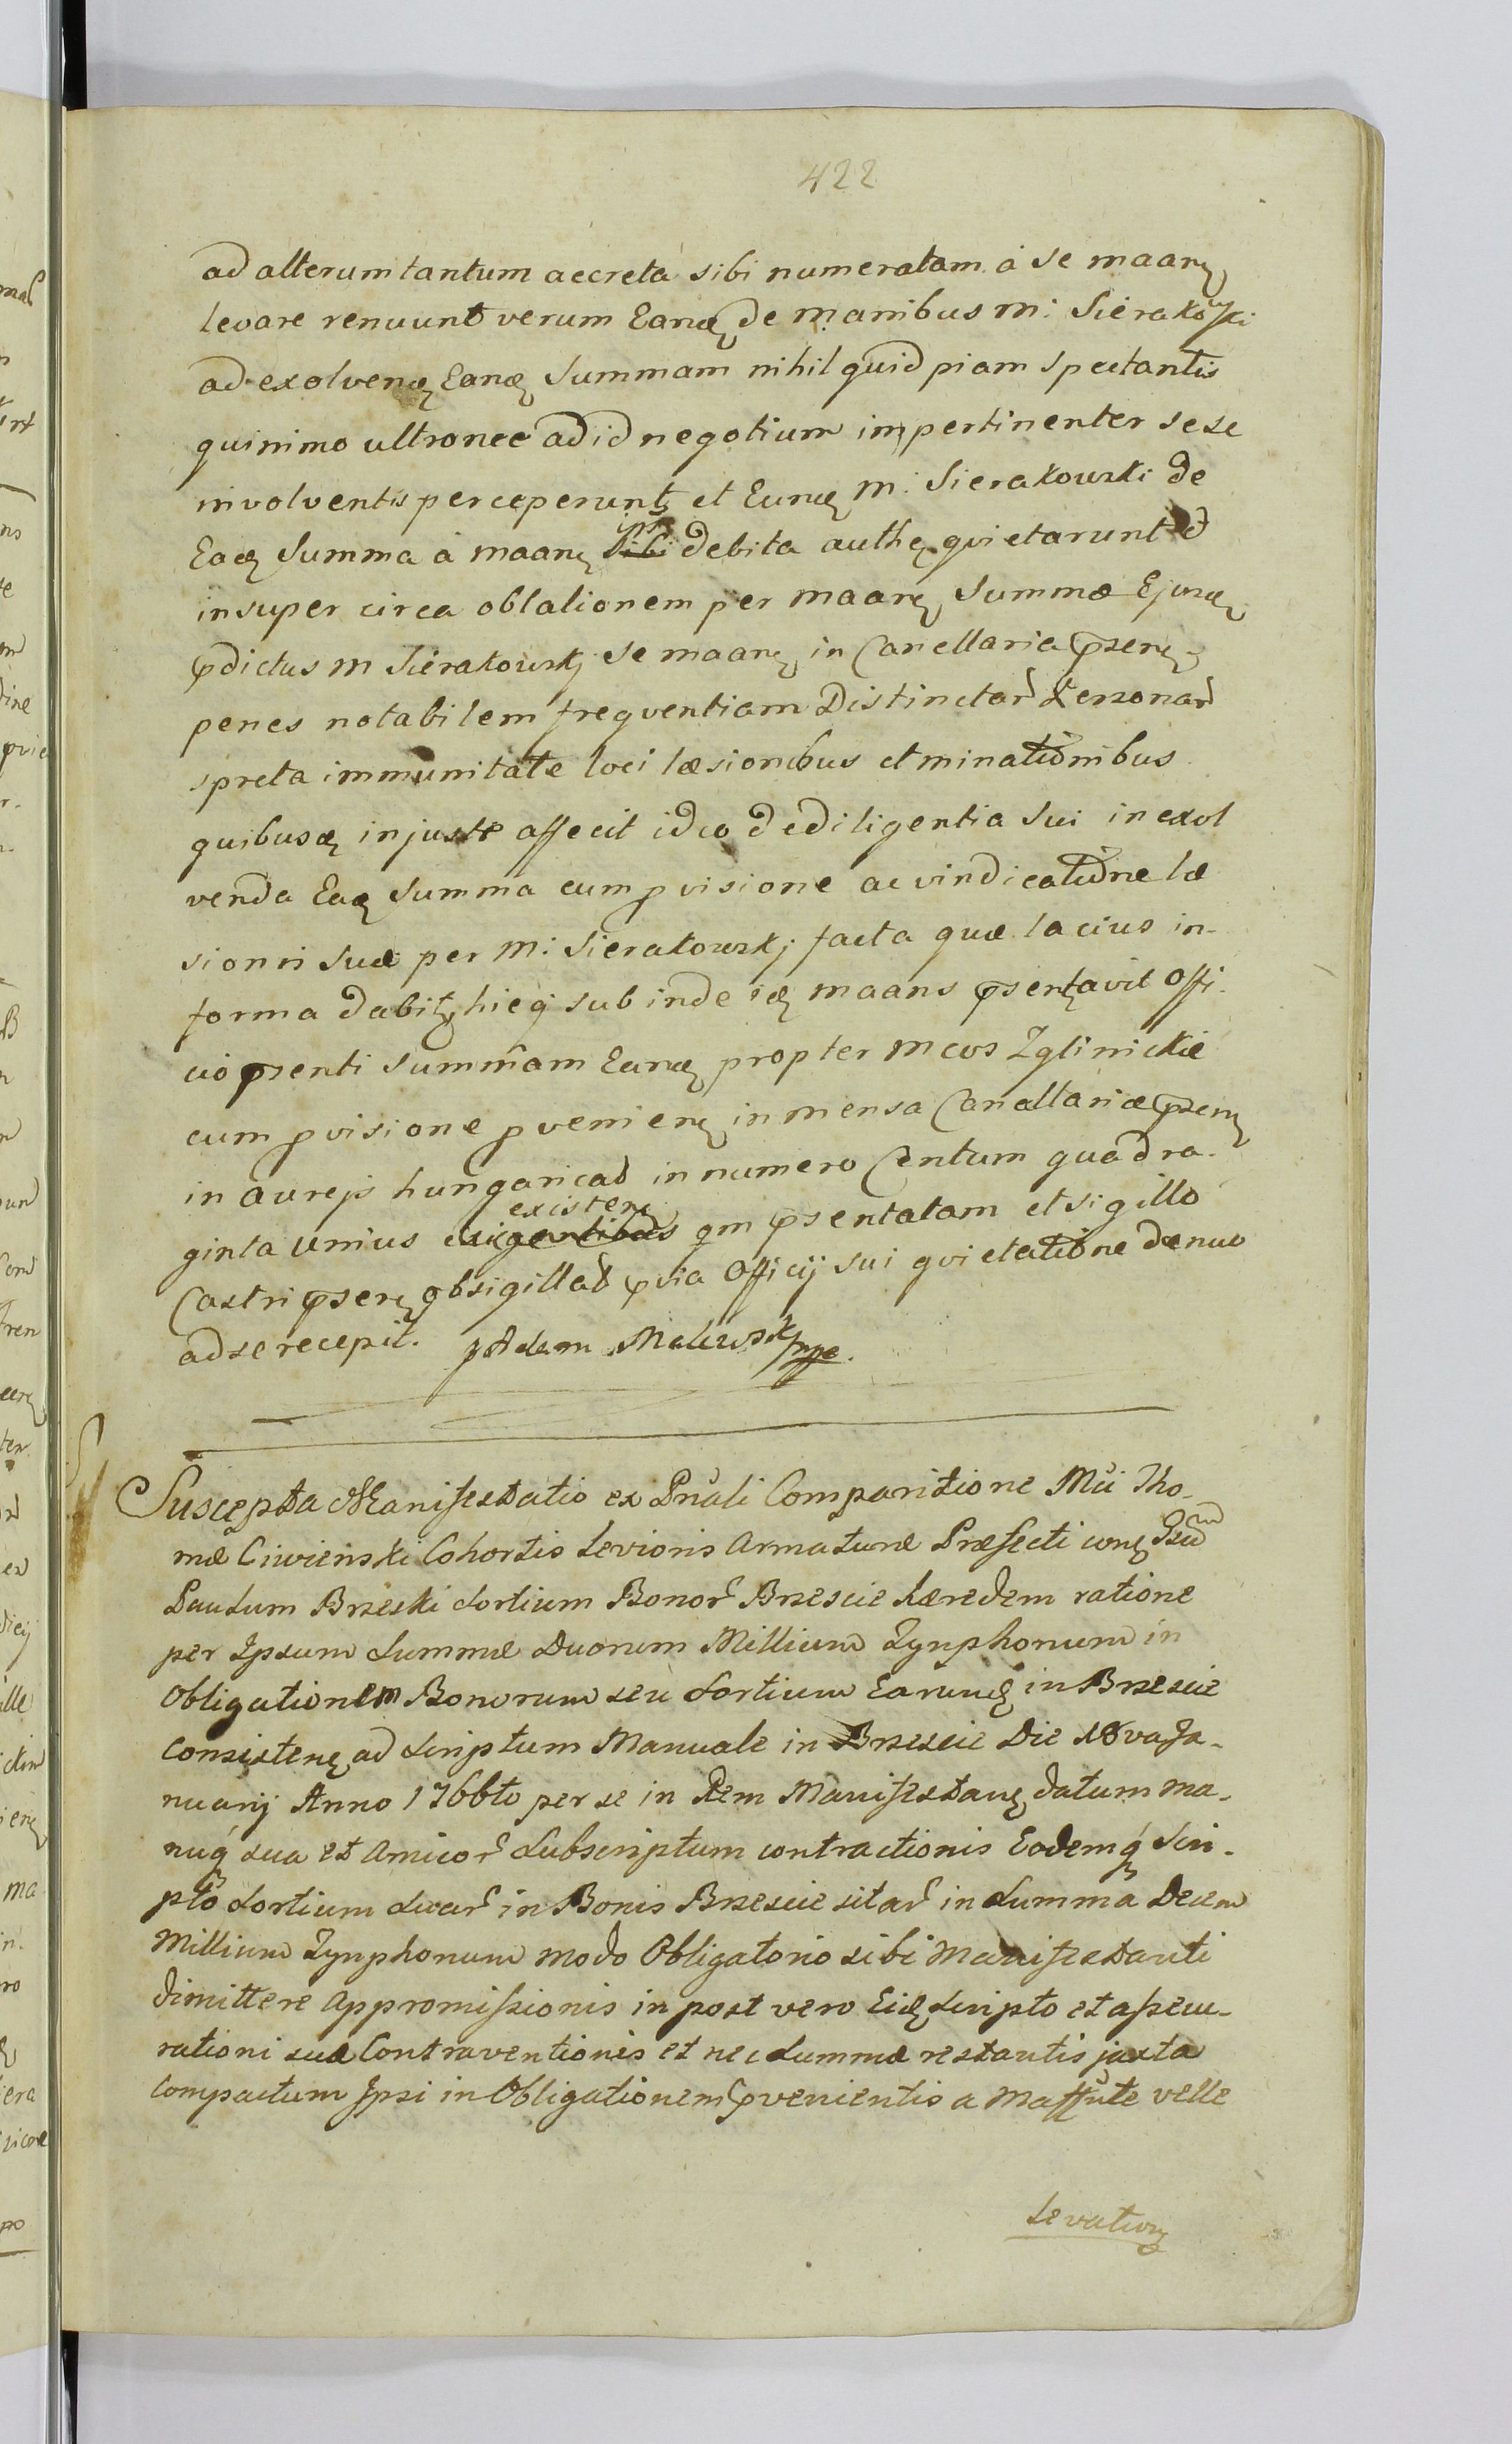 422
ad alterum tantum accreta sibi numeratam à se maanę
levare renuunt verum Eandę de manibus M: Sierakowski
ad exolvendę Eandę Summam nihil quid piam spectantis
quinimo ultronee ad id negotium impertinenter sese
involventis perceperunt et Eundę M: Sierakowski de
Eadę Summa à maanę ipsis debita authę qvietarunt
insuper circa oblationem per maanę Summæ Ejusdę
pdictus M Sierakowskj se maanę in Cancellaria psenę
penes notabilem freqventiam Distinctar Personar
spreta immunitate loci læsionibus et minationibus
quibusdę injuste affecit ideo de diligentia Sui in exol
venda Eadę Summa cum pvisione ac vindicatione læ
sionis Suæ per M: Sierakowskj facta quæ lacius in-
forma dabit, hicq sub inde idę maans psentavit Offi-
cio psenti Summam Eandę propter Mcos Zglinickie
cum pvisione pvenienę in mensa Cancellariæ psenę
in aureis hungaricat in numero Centum quadra-
ginta unius existenę qm psentatam et sigillo
Castri psenę obsigillat pvia Officij sui qvietatione denuo
ad se recepit. Adam Malewski mpe.
Suscepta Manifestatio ex Pnali Comparitione Mci Tho-
mæ Ciwieński Cohortis Levioris Armaturæ Præfecti conę Gsum
Paulum Brzeski Sortium Bonor Brzescie hæredem ratione
per Ipsum Summæ Duorum Millium Tynphonum in
Obligationem Bonorum seu Sortium Earundę in Brzescie
Consistenę ad Scriptum Manuale in Brzescie Die 18va Ja-
nuarij Anno 1766to per se in Rem Manifestanę datum ma-
nuq sua et Amicor Subscriptum contractionis Eodemq Scri-
pto Sortium Suar in Bonis Brzescie sitar in Summa Decem
Millium Tynphonum modo Obligatorio sibi Manifestanti
dimittere appromissionis in post vero Eidę Scripto et assecu-
rationi suæ Contraventionis et nec Summæ restantis juxta
Compactum Ipsi in Obligationem pvenientis a Maffnte velle
Levationę